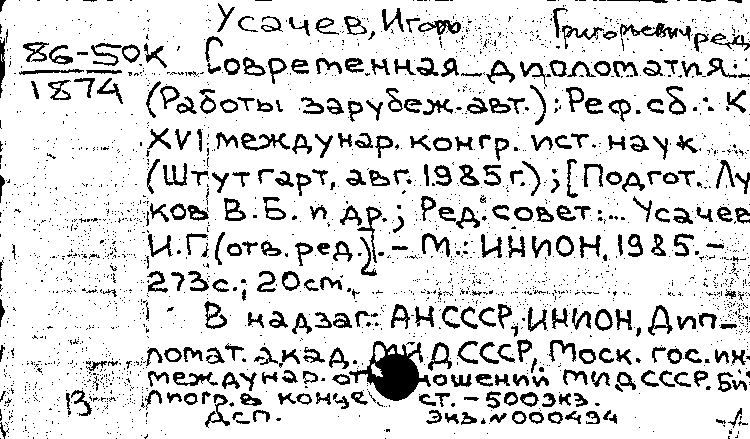 Усачев, Игорь Григорьевич ред.
86-50К
1874
Современная дипломатия:
(Работы зарубеж. авт.): Реф. сб.: К
XVI междунар. конгр. ист. наук
(Штутгарт, авг. 1985 г.); [Подгот. Лу
ков В.Б. и др.; Ред. совет: ... Усачев
И.Г. (отв. ред.)]. – М.: ИНИОН, 1985. –
273 с.; 20 см.
В надзаг.: АН СССР, ИНИОН, Дип-
ломат. акад. МИД СССР, Моск. гос. ин-
междунар. от ношений МИД СССР. Би
лиогр. в конце ст. – 500 экз.
ДСП. Экз. N 000494